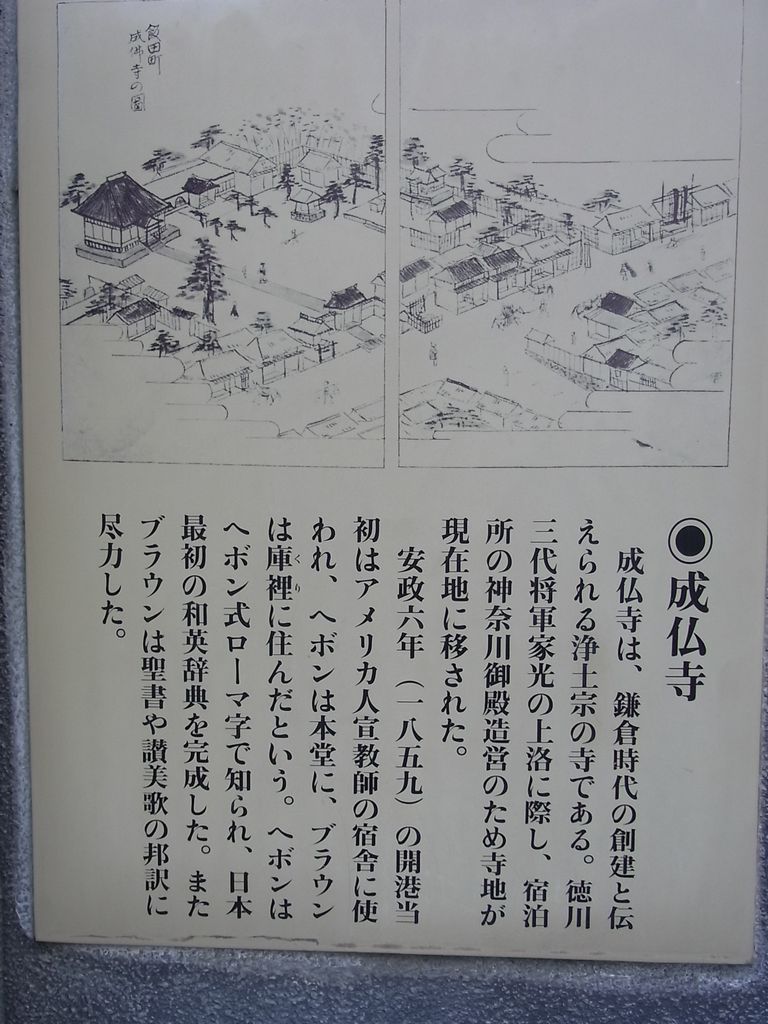 飯田町
成佛寺の圖
◉成仏寺
成仏寺は、鎌倉時代の創建と伝
えられる浄土宗の寺である。徳川
三代将軍家光の上洛に際し、宿泊
所の神奈川御殿造営のため寺地が
現在地に移された。
安政六年（一八五九）の開港当
初はアメリカ人宣教師の宿舎に使
われ、ヘボンは本堂に、ブラウン
は庫裡くりに住んだという。ヘボンは
ヘボン式ローマ字で知られ、日本
最初の和英辞典を完成した。また
ブラウンは聖書や讃美歌の邦訳に
尽力した。